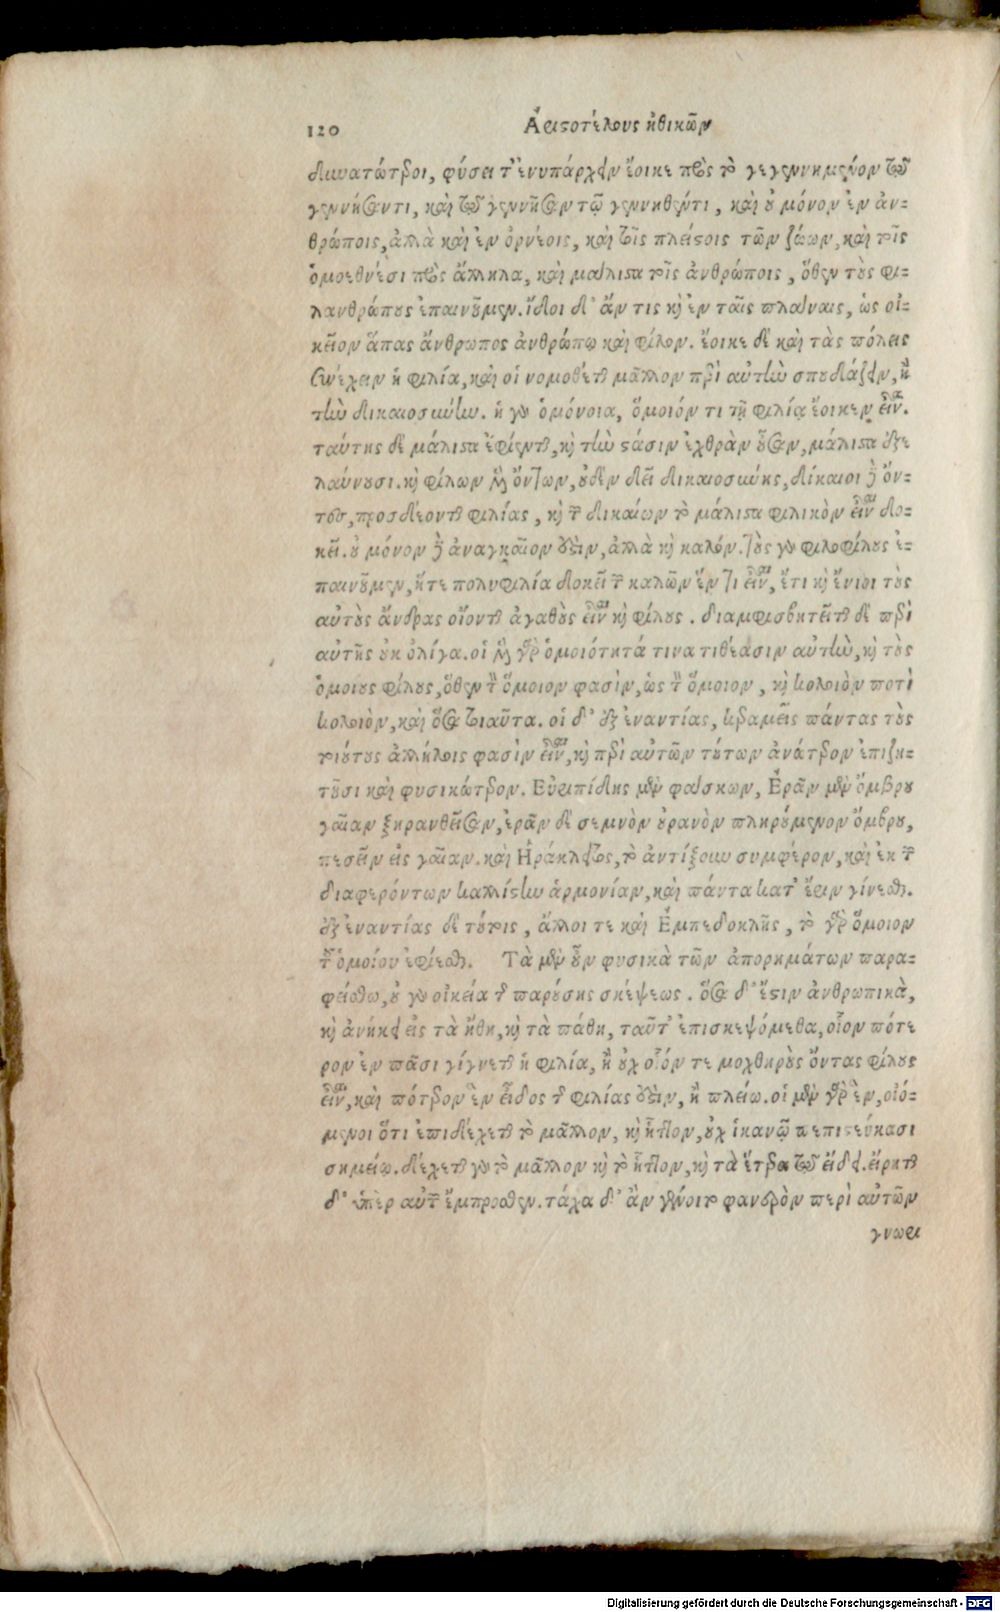 120 Ἀριστοτέλους ἠθικῶν
δυνατώτεροι, φύσει τ' ἐνυπάρχειν ἔοικε πρὸς τὸ γεγεννημένον τῷ
γεννήσαντι, καὶ τῷ γεννῆσαν τῷ γεννηθέντι, καὶ οὐ μόνον ἐν ἀν-
θρώποις, ἀλλὰ καὶ ἐν ὀρνέοις, καὶ τοῖς πλείστοις τῶν ζώων, καὶ τοῖς
ὁμοεθνέσι πρὸς ἄλληλα, καὶ μάλιστα τοῖς ἀνθρώποις, ὅθεν τοὺς φι-
λανθρώπους ἐπαινοῦμεν. ἴδοι δ' ἄν τις καὶ ἐν ταῖς πλάναις, ὡς οἰ-
κεῖον ἅπας ἄνθρωπος ἀνθρώπῳ καὶ φίλον. ἔοικε δὲ καὶ τὰς πόλεις
συνέχειν ἡ φιλία, καὶ οἱ νομοθέται μᾶλλον περὶ αὐτὴν σπουδάζειν, ἢ
τὴν δικαιοσύνην. ἡ γὰρ ὁμόνοια, ὅμοιόν τι τῇ φιλίᾳ ἔοικεν εἶναι.
ταύτης δὲ μάλιστα ἐφίενται, καὶ τὴν στάσιν ἐχθρὰν οὖσαν, μάλιστα ἐξε
λαύνουσι. καὶ φίλων μὲν ὄντων, οὐδὲν δεῖ δικαιοσύνης, δίκαιοι δὲ ὄν-
τες, προσδέονται φιλίας, καὶ τῶν δικαίων τὸ μάλιστα φιλικὸν εἶναι δο-
κεῖ. οὐ μόνον δὲ ἀναγκαῖον ἐστὶν, ἀλλὰ καὶ καλόν. τοὺς γὰρ φιλοφίλους ἐ-
παινοῦμεν, ἥτε πολυφιλία δοκεῖ τῶν καλῶν ἕν τι εἶναι, ἔτι καὶ ἔνιοι τοὺς
αὐτοὺς ἄνδρας οἴονται ἀγαθοὺς εἶναι καὶ φίλους. διαμφισβητεῖται δὲ περὶ
αὐτῆς οὐκ ὀλίγα. οἱ μὲν γὰρ ὁμοιότητά τινα τιθέασιν αὐτὴν, καὶ τοὺς
ὁμοίους φίλους, ὅθεν τὸν ὅμοιον φασὶν, ὡς τὸν ὅμοιον, καὶ κολοιὸν ποτὶ
κολοιὸν, καὶ ὅσα τοιαῦτα. οἱ δ' ἐξ ἐναντίας, κεραμεῖς πάντας τοὺς
τοιούτους ἀλλήλοις φασὶν εἶναι, καὶ περὶ αὐτῶν τούτων ἀνώτερον ἐπιζη-
τοῦσι καὶ φυσικώτερον. Εὐριπίδης μὲν φάσκων, Ἐρᾶν μὲν ὄμβρου
γαῖαν ξηρανθεῖσαν, ἐρᾶν δὲ σεμνὸν οὐρανὸν πληρούμενον ὄμβρου,
πεσεῖν εἰς γαῖαν. καὶ Ἡράκλειτος, τὸ ἀντίξουν συμφέρον, καὶ ἐκ τῶν
διαφερόντων καλλίστην ἁρμονίαν, καὶ πάντα κατ' ἔριν γίνεσθαι.
ἐξ ἐναντίας δὲ τούτοις, ἄλλοι τε καὶ Ἐμπεδοκλῆς, τὸ γὰρ ὅμοιον
τοῦ ὁμοίου ἐφίεσθαι. Τὰ μὲν οὖν φυσικὰ τῶν ἀπορημάτων παρα-
φείσθω, οὐ γὰρ οἰκεία τῆς παρούσης σκέψεως. ὅσα δ' ἔστιν ἀνθρωπικὰ,
καὶ ἀνήκει εἰς τὰ ἤθη, καὶ τὰ πάθη, ταῦτ' ἐπισκεψόμεθα, οἷον πότε
ρον ἐν πᾶσι γίγνεται ἡ φιλία, ἢ οὐχ οἷόν τε μοχθηροὺς ὄντας φίλους
εἶναι, καὶ πότερον ἓν εἶδος τῆς φιλίας ἐστὶν, ἢ πλείω. οἱ μὲν γὰρ ἓν, οἰό-
μενοι ὅτι ἐπιδέχεται τὸ μᾶλλον, καὶ ἧττον, οὐχ ἱκανῷ πεπιστεύκασι
σημείῳ. δέχεται γὰρ τὸ μᾶλλον καὶ τὸ ἧττον, καὶ τὰ ἕτερα τῷ εἴδει. εἴρηται
δ' ὑπὲρ αὐτῶν ἔμπροσθεν. τάχα δ' ἂν γένοιτο φανερὸν περὶ αὐτῶν
γνωρι
Digitalisierung gefördert durch die Deutsche Forschungsgemeinschaft - DFG